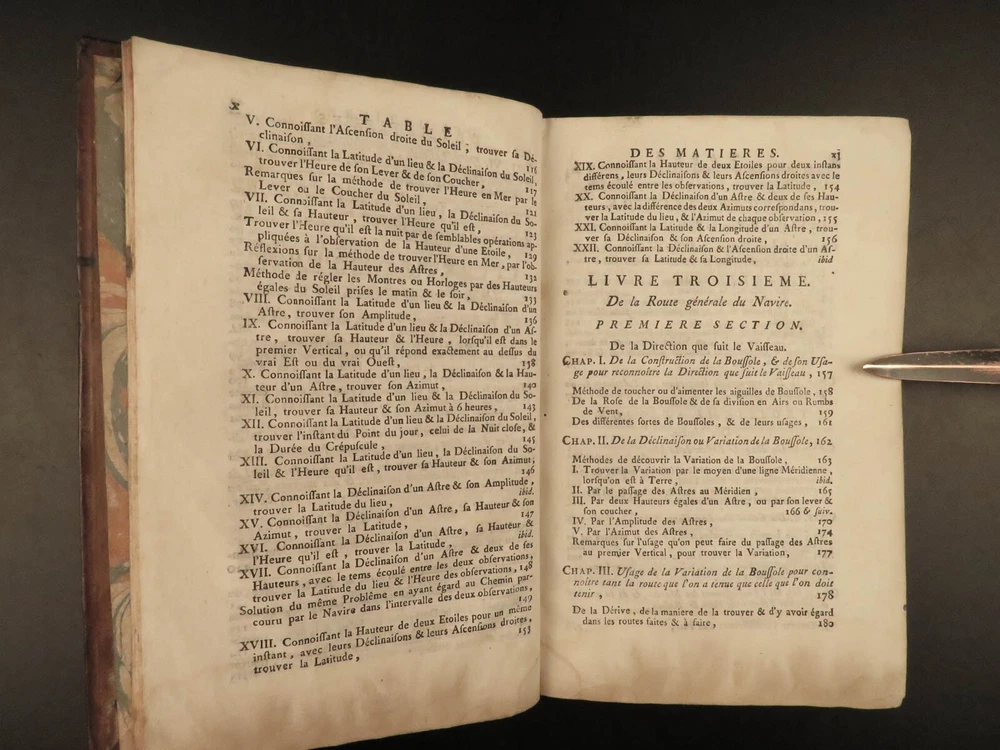 x
TABLE
V. Connoiſſant l'Aſcenſion droite du Soleil ; trouver ſa Dé-
clinaiſon , 116
VI. Connoiſſant la Latitude d'un lieu & la Déclinaiſon du Soleil,
trouver l'Heure de ſon Lever & de ſon Coucher , 117
Remarques ſur la méthode de trouver l'Heure en Mer par le
Lever ou le Coucher du Soleil , 121
VII. Connoiſſant la Latitude d'un lieu, la Déclinaiſon du So-
leil & ſa Hauteur , trouver l'Heure qu'il eſt , 123
Trouver l'Heure qu'il eſt la nuit par de ſemblables opérations ap-
pliquées à l'obſervation de la Hauteur d'une Etoile , 129
Réflexions ſur la méthode de trouver l'Heure en Mer , par l'ob-
ſervation de la Hauteur des Aſtres , 132
Méthode de régler les Montres ou Horloges par des Hauteurs
égales du Soleil priſes le matin & le ſoir , 133
VIII. Connoiſſant la Latitude d'un lieu & la Déclinaiſon d'un
Aſtre , trouver ſon Amplitude , 136
IX. Connoiſſant la Latitude d'un lieu & la Déclinaiſon d'un Aſ-
tre , trouver ſa Hauteur & l'Heure , lorſqu'il eſt dans le
premier Vertical , ou qu'il répond exactement au deſſus du
vrai Eſt ou du vrai Oueſt , 138
X. Connoiſſant la Latitude d'un lieu , la Déclinaiſon & la Hau-
teur d'un Aſtre , trouver ſon Azimut , 140
XI. Connoiſſant la Latitude d'un lieu & la Déclinaiſon du So-
leil , trouver ſa Hauteur & ſon Azimut à 6 heures , 143
XII. Connoiſſant la Latitude d'un lieu & la Déclinaiſon du Soleil ,
trouver l'inſtant du Point du jour , celui de la Nuit cloſe , &
la Durée du Crépuſcule , 145
XIII. Connoiſſant la Latitude d'un lieu , la Déclinaiſon du So-
leil & l'Heure qu'il eſt , trouver ſa Hauteur & ſon Azimut ,
146
XIV. Connoiſſant la Déclinaiſon d'un Aſtre & ſon Amplitude ,
trouver la Latitude du lieu , ibid.
XV. Connoiſſant la Déclinaiſon d'un Aſtre , ſa Hauteur & ſon
Azimut , trouver la Latitude , 147
XVI. Connoiſſant la Déclinaiſon d'un Aſtre , ſa Hauteur &
l'Heure qu'il eſt , trouver la Latitude , ibid.
XVII. Connoiſſant la Déclinaiſon d'un Aſtre & deux de ſes
Hauteurs , avec le tems écoulé entre les deux obſervations ,
trouver la Latitude du lieu & l'Heure des obſervations , 148
Solution du même Problême en ayant égard au Chemin par-
couru par le Navire dans l'intervalle des deux obſervations ,
149
XVIII. Connoiſſant la Hauteur de deux Etoiles pour un même
inſtant , avec leurs Déclinaiſons & leurs Aſcenſions droites ,
trouver la Latitude , 153
DES MATIERES. xj
XIX. Connoiſſant la Hauteur de deux Etoiles pour deux inſtans
différens , leurs Déclinaiſons & leurs Aſcenſions droites avec le
tems écoulé entre les obſervations , trouver la Latitude , 154
XX. Connoiſſant la Déclinaiſon d'un Aſtre & deux de ſes Hau-
teurs , avec la différence des deux Azimuts correſpondans , trou-
ver la Latitude du lieu , & l'Azimut de chaque obſervation , 155
XXI. Connoiſſant la Latitude & la Longitude d'un Aſtre , trou-
ver ſa Déclinaiſon & ſon Aſcenſion droite , 156
XXII. Connoiſſant la Déclinaiſon & l'Aſcenſion droite d'un Aſ-
tre , trouver ſa Latitude & ſa Longitude , ibid
LIVRE TROISIEME.
De la Route générale du Navire.
PREMIERE SECTION.
De la Direction que ſuit le Vaiſſeau.
CHAP. I. De la Conſtruction de la Bouſſole , & de ſon Uſa-
ge pour reconnoître la Direction que ſuit le Vaiſſeau , 157
Méthode de toucher ou d'aimenter les aiguilles de Bouſſole , 158
De la Roſe de la Bouſſole & de ſa diviſion en Airs ou Rumbs
de Vent , 159
Des différentes ſortes de Bouſſoles , & de leurs uſages , 161
CHAP. II. De la Déclinaiſon ou Variation de la Bouſſole , 162
Méthodes de découvrir la Variation de la Bouſſole , 163
I. Trouver la Variation par le moyen d'une ligne Méridienne ,
lorſqu'on eſt à Terre , ibid.
II. Par le paſſage des Aſtres au Méridien , 165
III. Par deux Hauteurs égales d'un Aſtre , ou par ſon lever &
ſon coucher , 166 & ſuiv.
IV. Par l'Amplitude des Aſtres , 170
V. Par l'Azimut des Aſtres , 174
Remarques ſur l'uſage qu'on peut faire du paſſage des Aſtres
au premier Vertical , pour trouver la Variation , 177
CHAP. III. Uſage de la Variation de la Bouſſole pour con-
noître tant la route que l'on a tenue que celle que l'on doit
tenir , 178
De la Dérive , de la maniere de la trouver & d'y avoir égard
dans les routes faites & à faire , 180